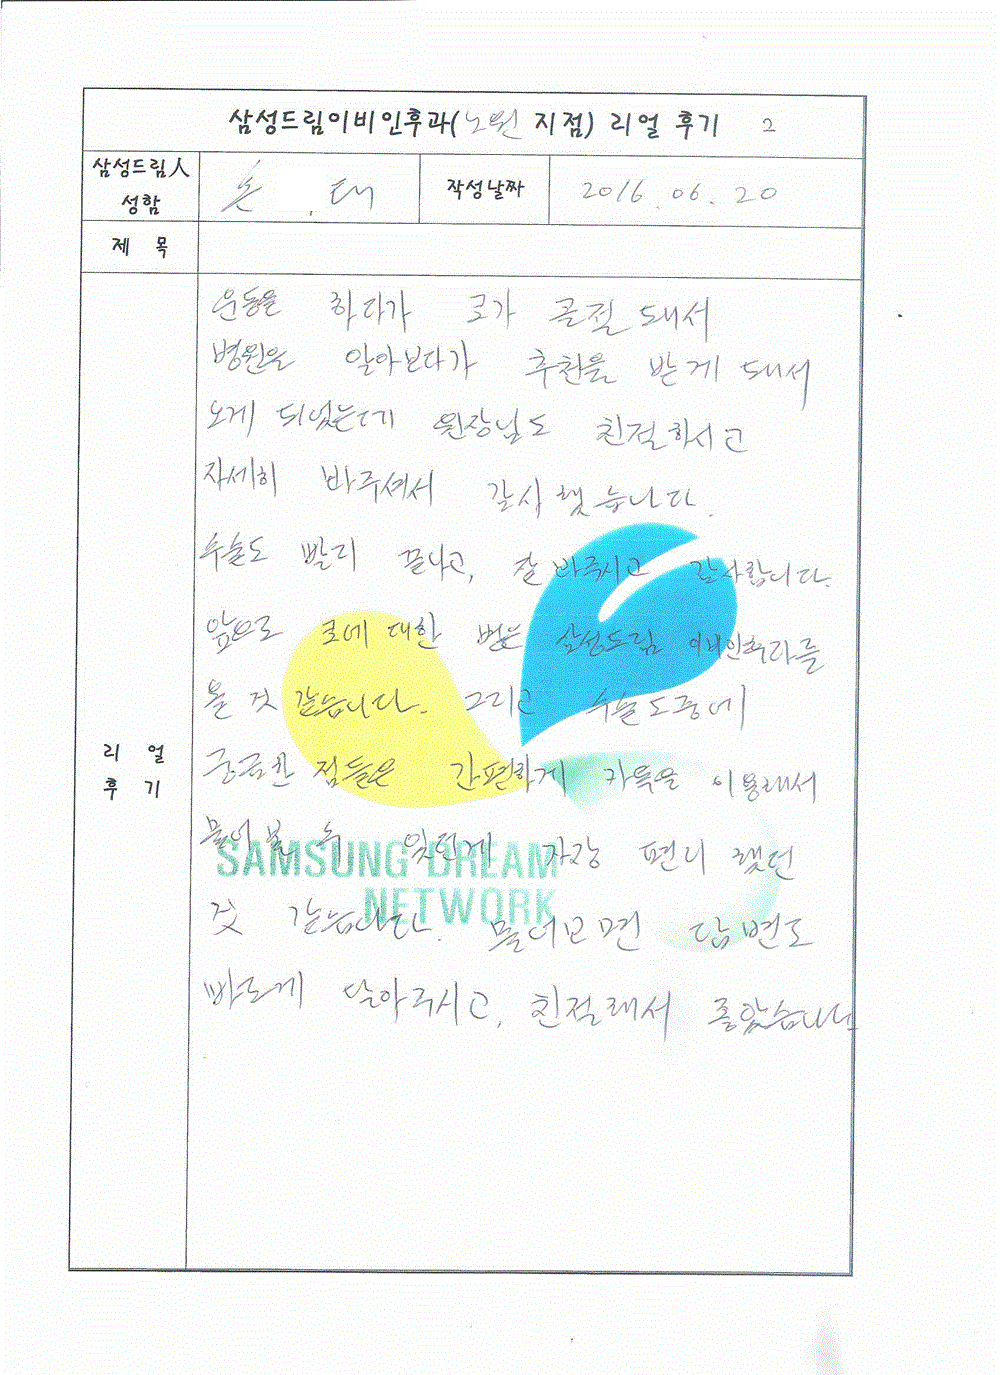 삼성드림이비인후과(노원 지점) 리얼 후기 2
삼성드림人 성함
손 태
작성날짜
2016.06.20
제 목
리 얼
후 기
운동을 하다가 코가 골절 돼서
병원을 알아보다가 추천을 받게 돼서
오게 되었는데 원장님도 친절하시고
자세히 봐주셔서 감사했습니다.
수술도 빨리 끝나고, 잘 봐주시고 감사합니다.
앞으로 코에 대한 병은 삼성드림 이비인후과를
올 것 같습니다. 그리고 수술 도중에
궁금한 점들은 간편하게 카톡을 이용해서
물어볼 수 있던게 가장 편리 했던
것 같습니다. 물어보면 답변도
바로게 달아주시고, 친절해서 좋았습니다
SAMSUNG DREAM
NETWORK